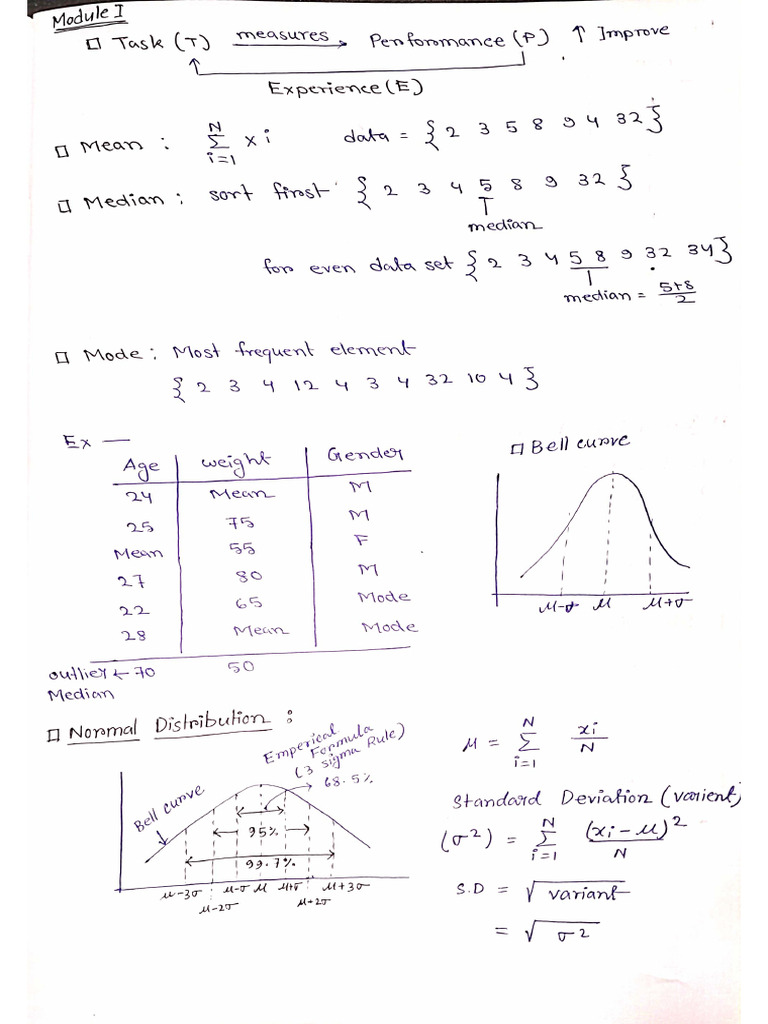 Module I
Task (T) measures Performance (P) ↑ Improve
Experience (E)
Mean : N Σ i=1 xi data = {2 3 5 8 9 4 32}
Median : sort first {2 3 4 5 8 9 32}
median
for even data set {2 3 4 5 8 9 32 34}
median = 5+8/2
Mode : Most frequent element
{2 3 4 12 4 3 4 32 10 4}
Ex —
Age weight Gender
24 Mean M
25 75 M
Mean 55 F
27 80 M
22 65 Mode
28 Mean Mode
outlier ← 70 50
Median
Bell curve
μ-σ μ μ+σ
Normal Distribution :
Emperical
Formula
(3 sigma Rule)
68.5%
Bell curve
95%
99.7%
μ-3σ μ-σ μ μ+σ μ+3σ
μ-2σ μ+2σ
μ = N Σ i=1 xi/N
Standard Deviation (varient)
(σ²) = N Σ i=1 (xi-μ)²/N
S.D = √variant
= √σ²